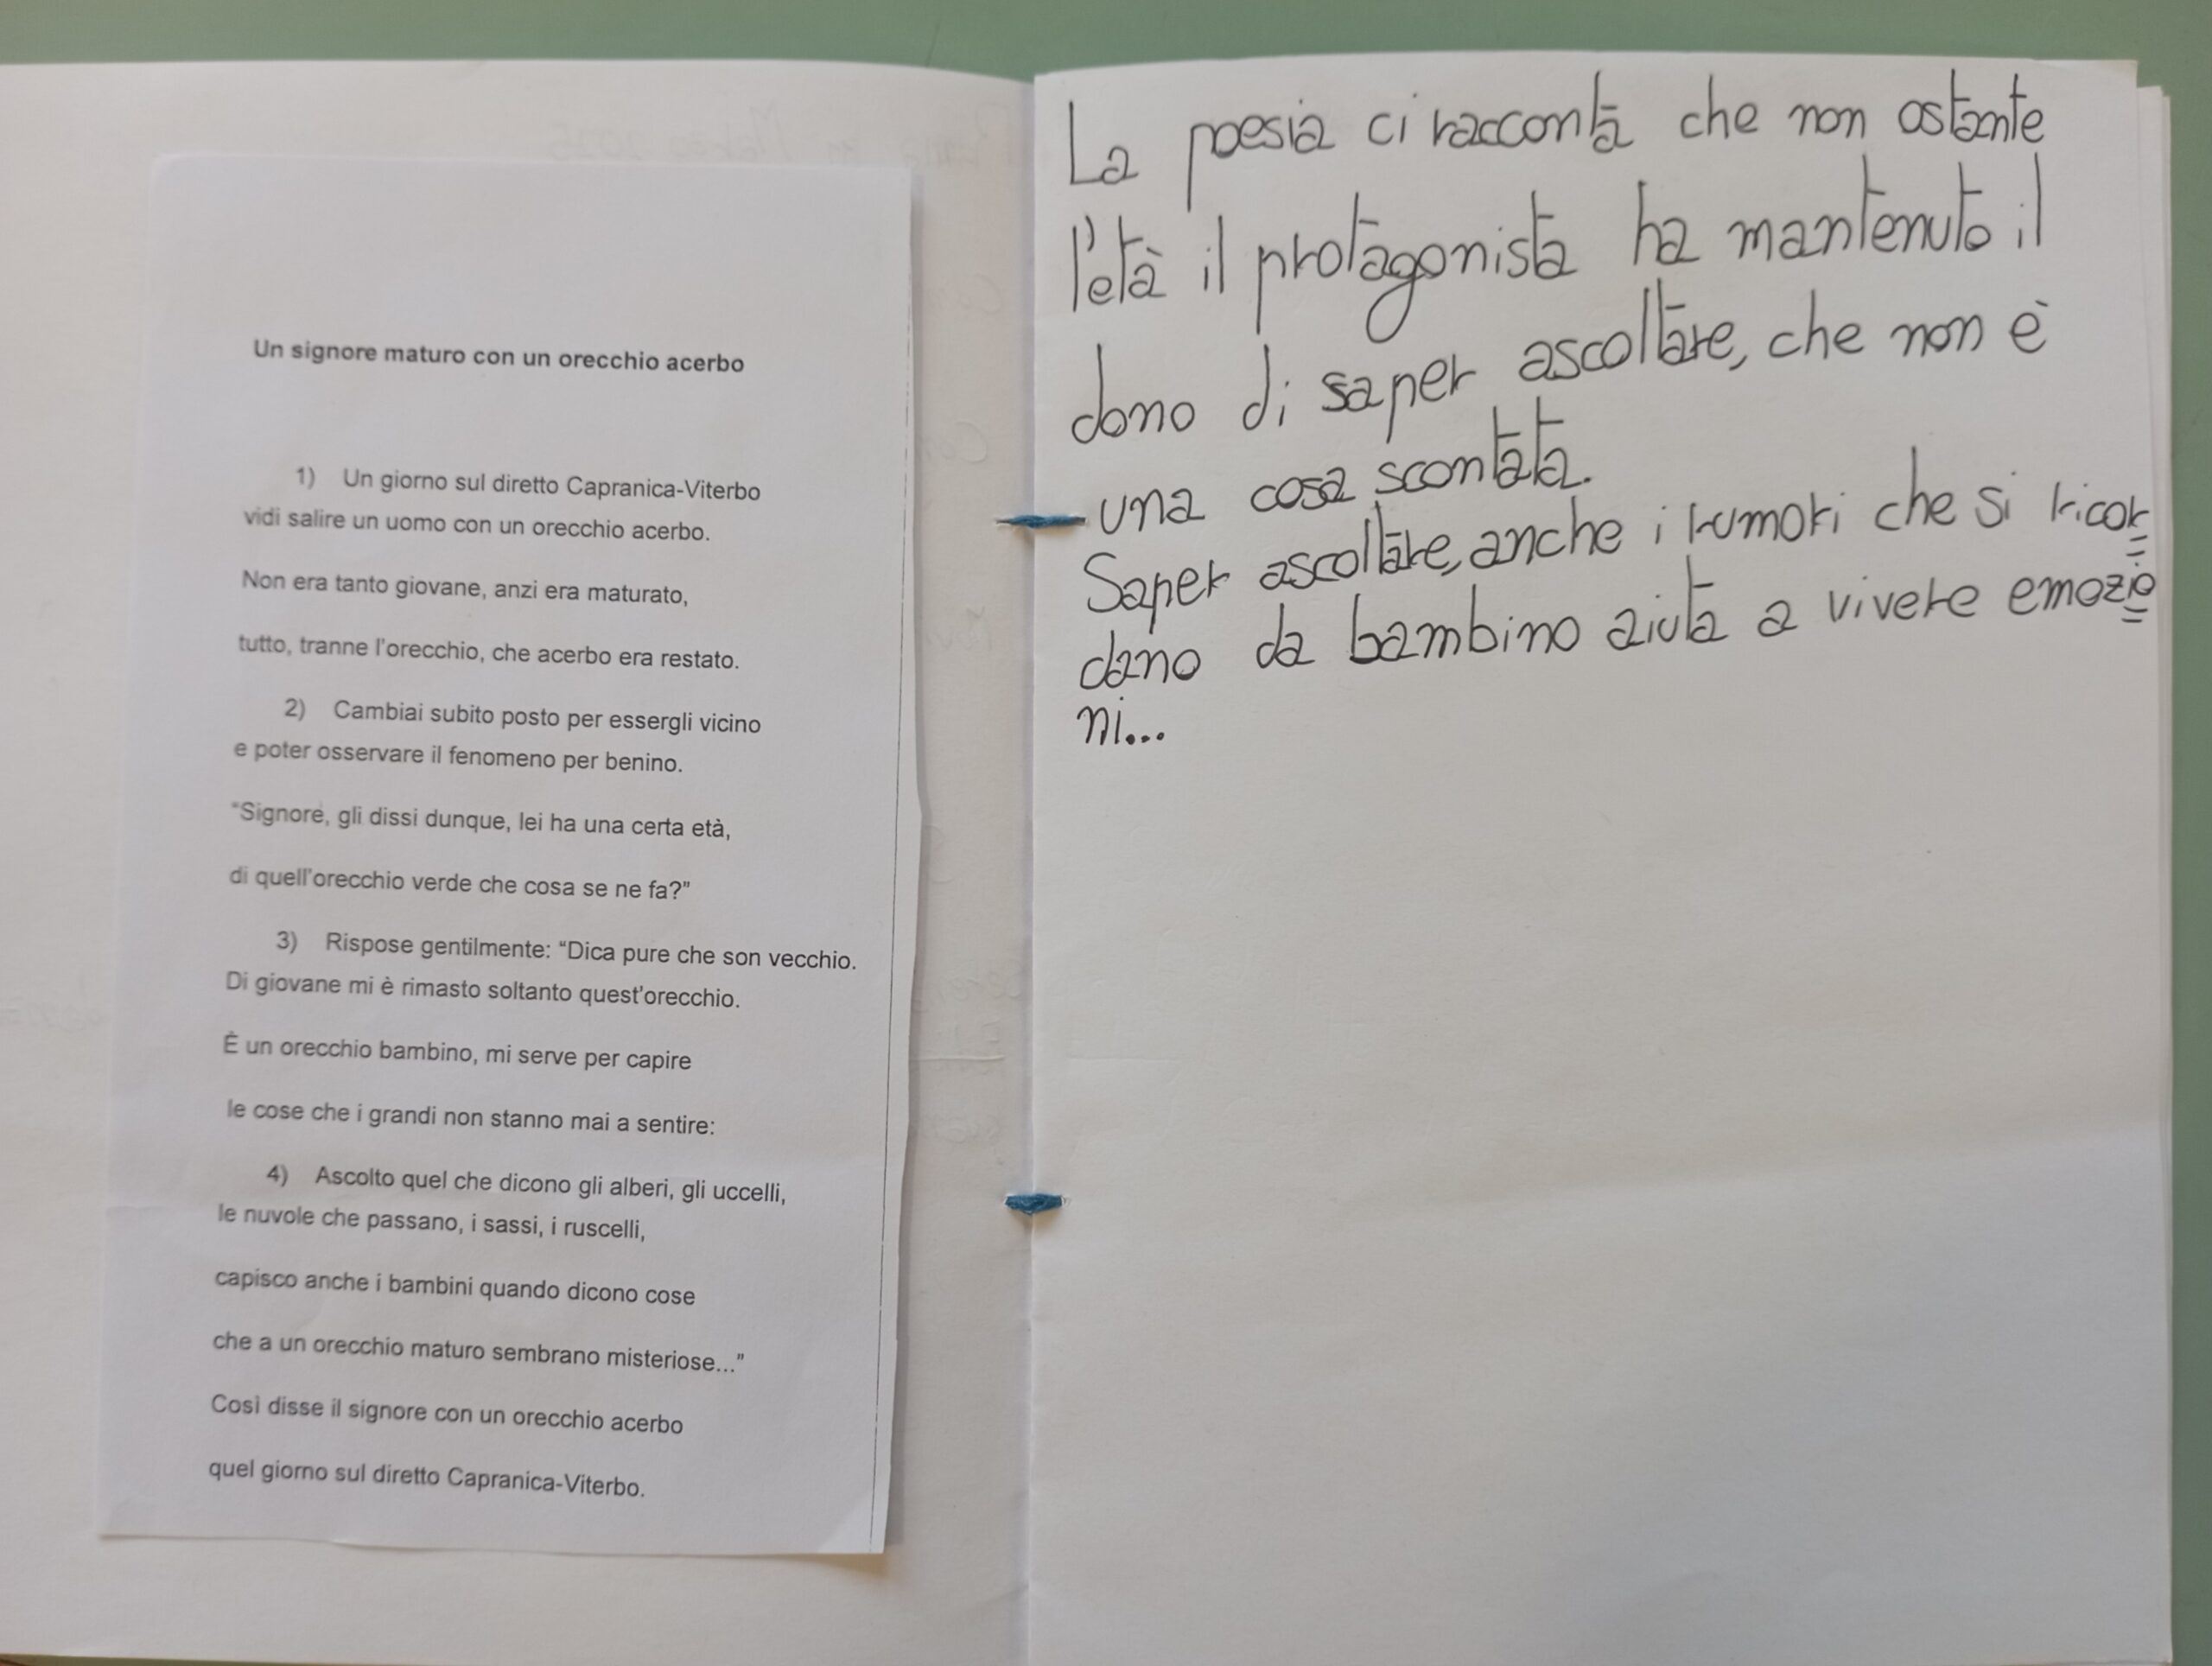 Un signore maturo con un orecchio acerbo
1) Un giorno sul diretto Capranica-Viterbo
vidi salire un uomo con un orecchio acerbo.
Non era tanto giovane, anzi era maturato,
tutto, tranne l'orecchio, che acerbo era restato.
2) Cambiai subito posto per essergli vicino
e poter osservare il fenomeno per benino.
“Signore, gli dissi dunque, lei ha una certa età,
di quell'orecchio verde che cosa se ne fa?”
3) Rispose gentilmente: “Dica pure che son vecchio.
Di giovane mi è rimasto soltanto quest'orecchio.
È un orecchio bambino, mi serve per capire
le cose che i grandi non stanno mai a sentire:
4) Ascolto quel che dicono gli alberi, gli uccelli,
le nuvole che passano, i sassi, i ruscelli,
capisco anche i bambini quando dicono cose
che a un orecchio maturo sembrano misteriose...”
Così disse il signore con un orecchio acerbo
quel giorno sul diretto Capranica-Viterbo.
La poesia ci racconta che non ostante
l'età il protagonista ha mantenuto il
dono di saper ascoltare, che non è
una cosa scontata.
Saper ascoltare, anche i rumori che si ricor=
dano da bambino aiuta a vivere emozio=
ni...